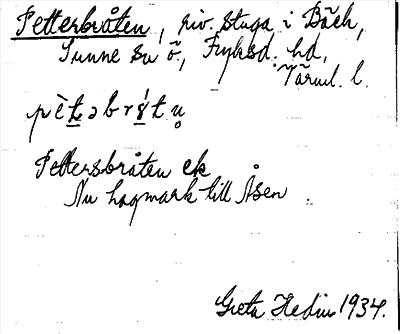 Petterbråten, riv. stuga i Bäck,
Sunne sn ö., Fryksd. hd,
Värml. l.
pètəbrǻtn̥
Pettersbråten ek
Nu hagmark till Åsen.
Greta Hedin 1934.